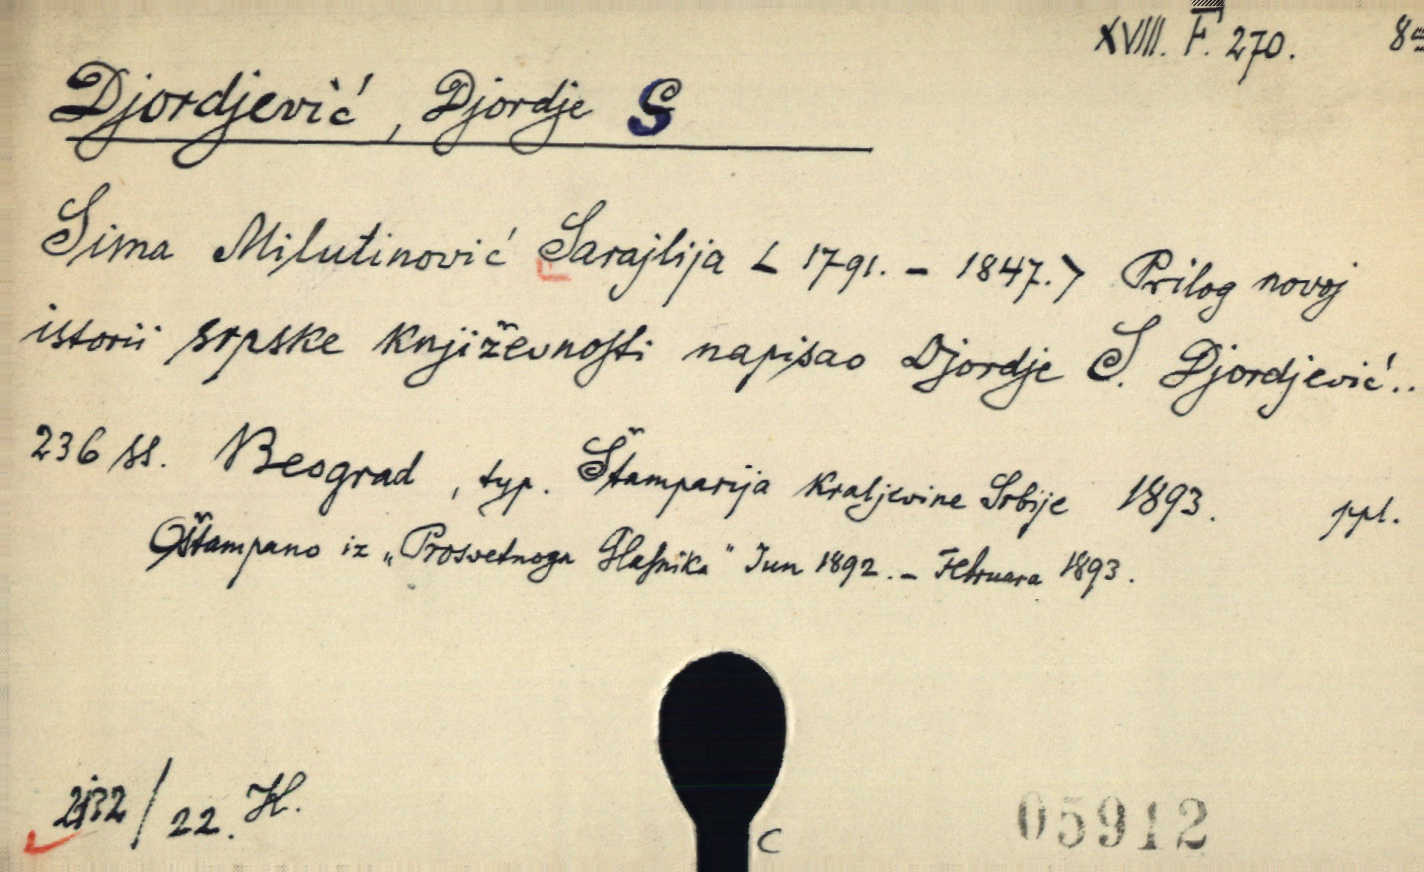 XVIII. F. 270. 8
Djordjević, Djordje S
Sima Milutinović Sarajlija < 1791. – 1847. > Prilog novoj
istorii srpske književnosti napisao Djordje S. Djordjević..
236 ss. Beograd, typ. Štamparija Kraljevine Srbije 1893. ppl.
Oštampano iz „Prosvetnoga Glasnika" Jun 1892. – Februara 1893.
2132/22. H.
C
05912